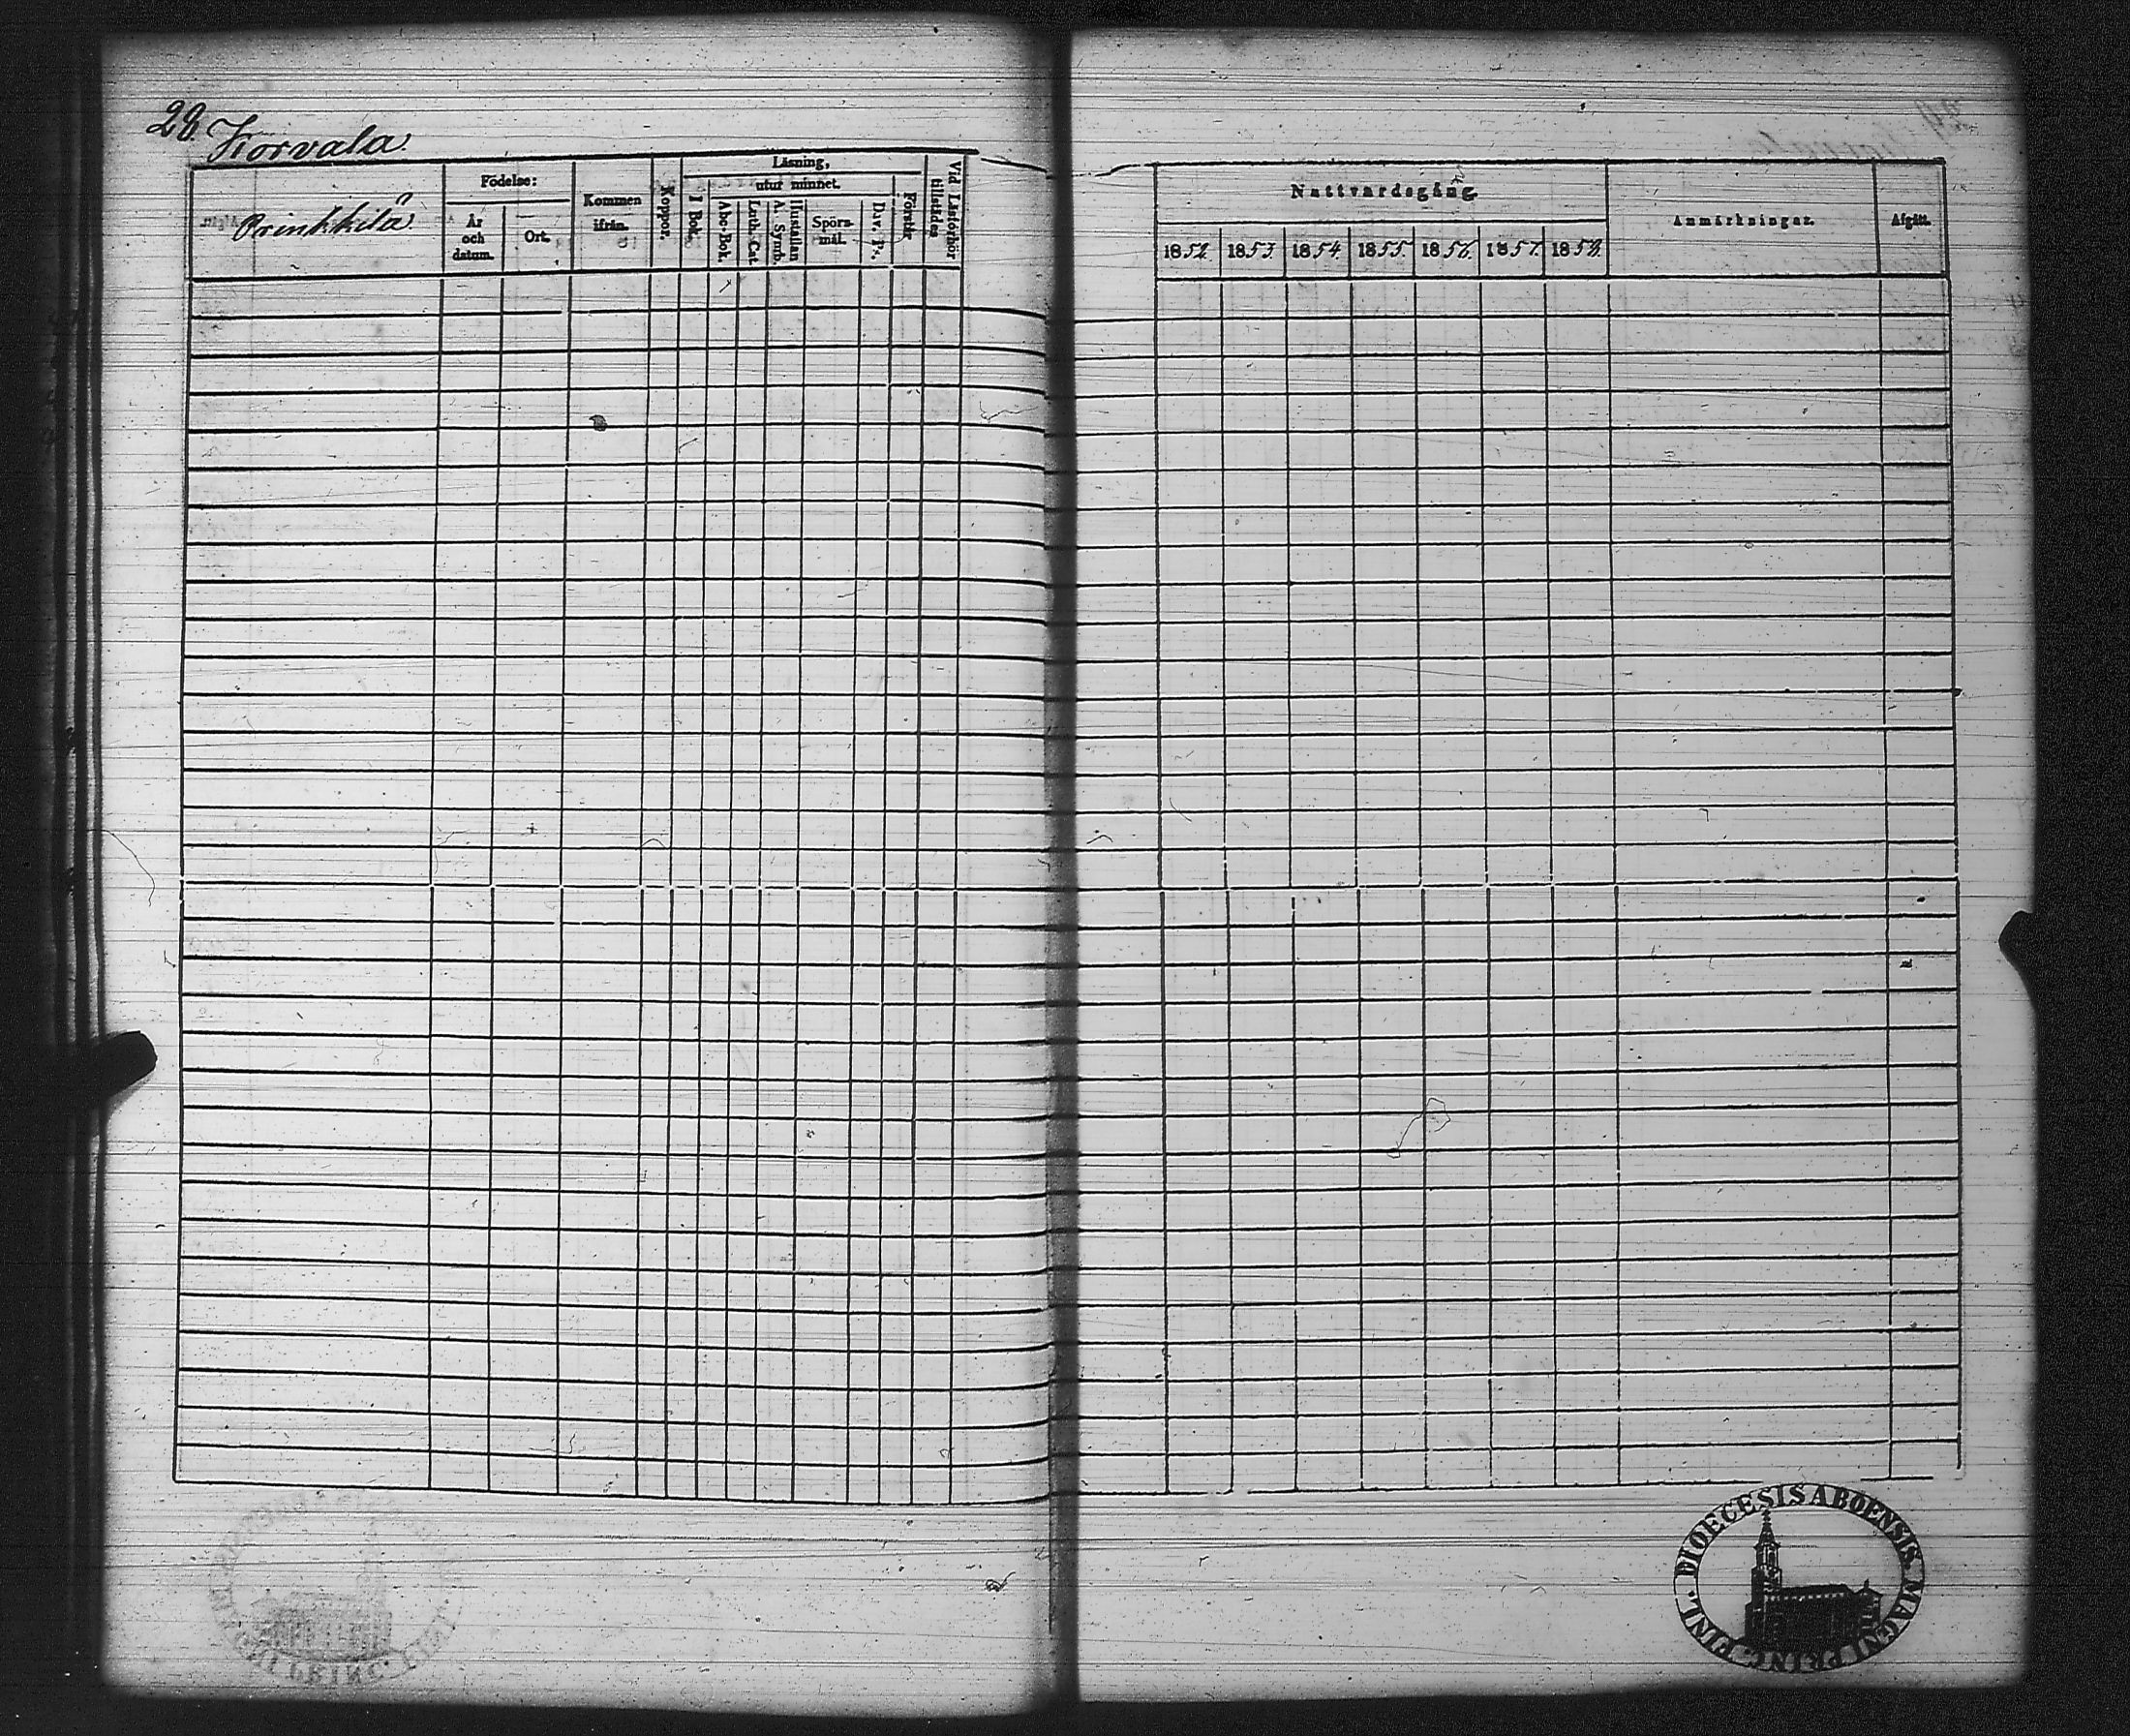 28. Korvala
Prinkkilä
Födelse:
År
och
datum.
Ort.
Kommen
ifrån.
Koppor.
Läsning,
utur minnet.
I Bok.
Abc-Bok.
Luth. Cat.
A. Symb.
Hustaflan
Spörs-
mål.
Dav. Ps.
Förstår
Vid Läsförhör
tillstädes
Nattvardsgång.
1852. 1853. 1854. 1855. 1856. 1857. 1858.
Anmärkningar.
Afgått.
DIOECESIS ABOENSIS. MAGNI PRINC. FINL.